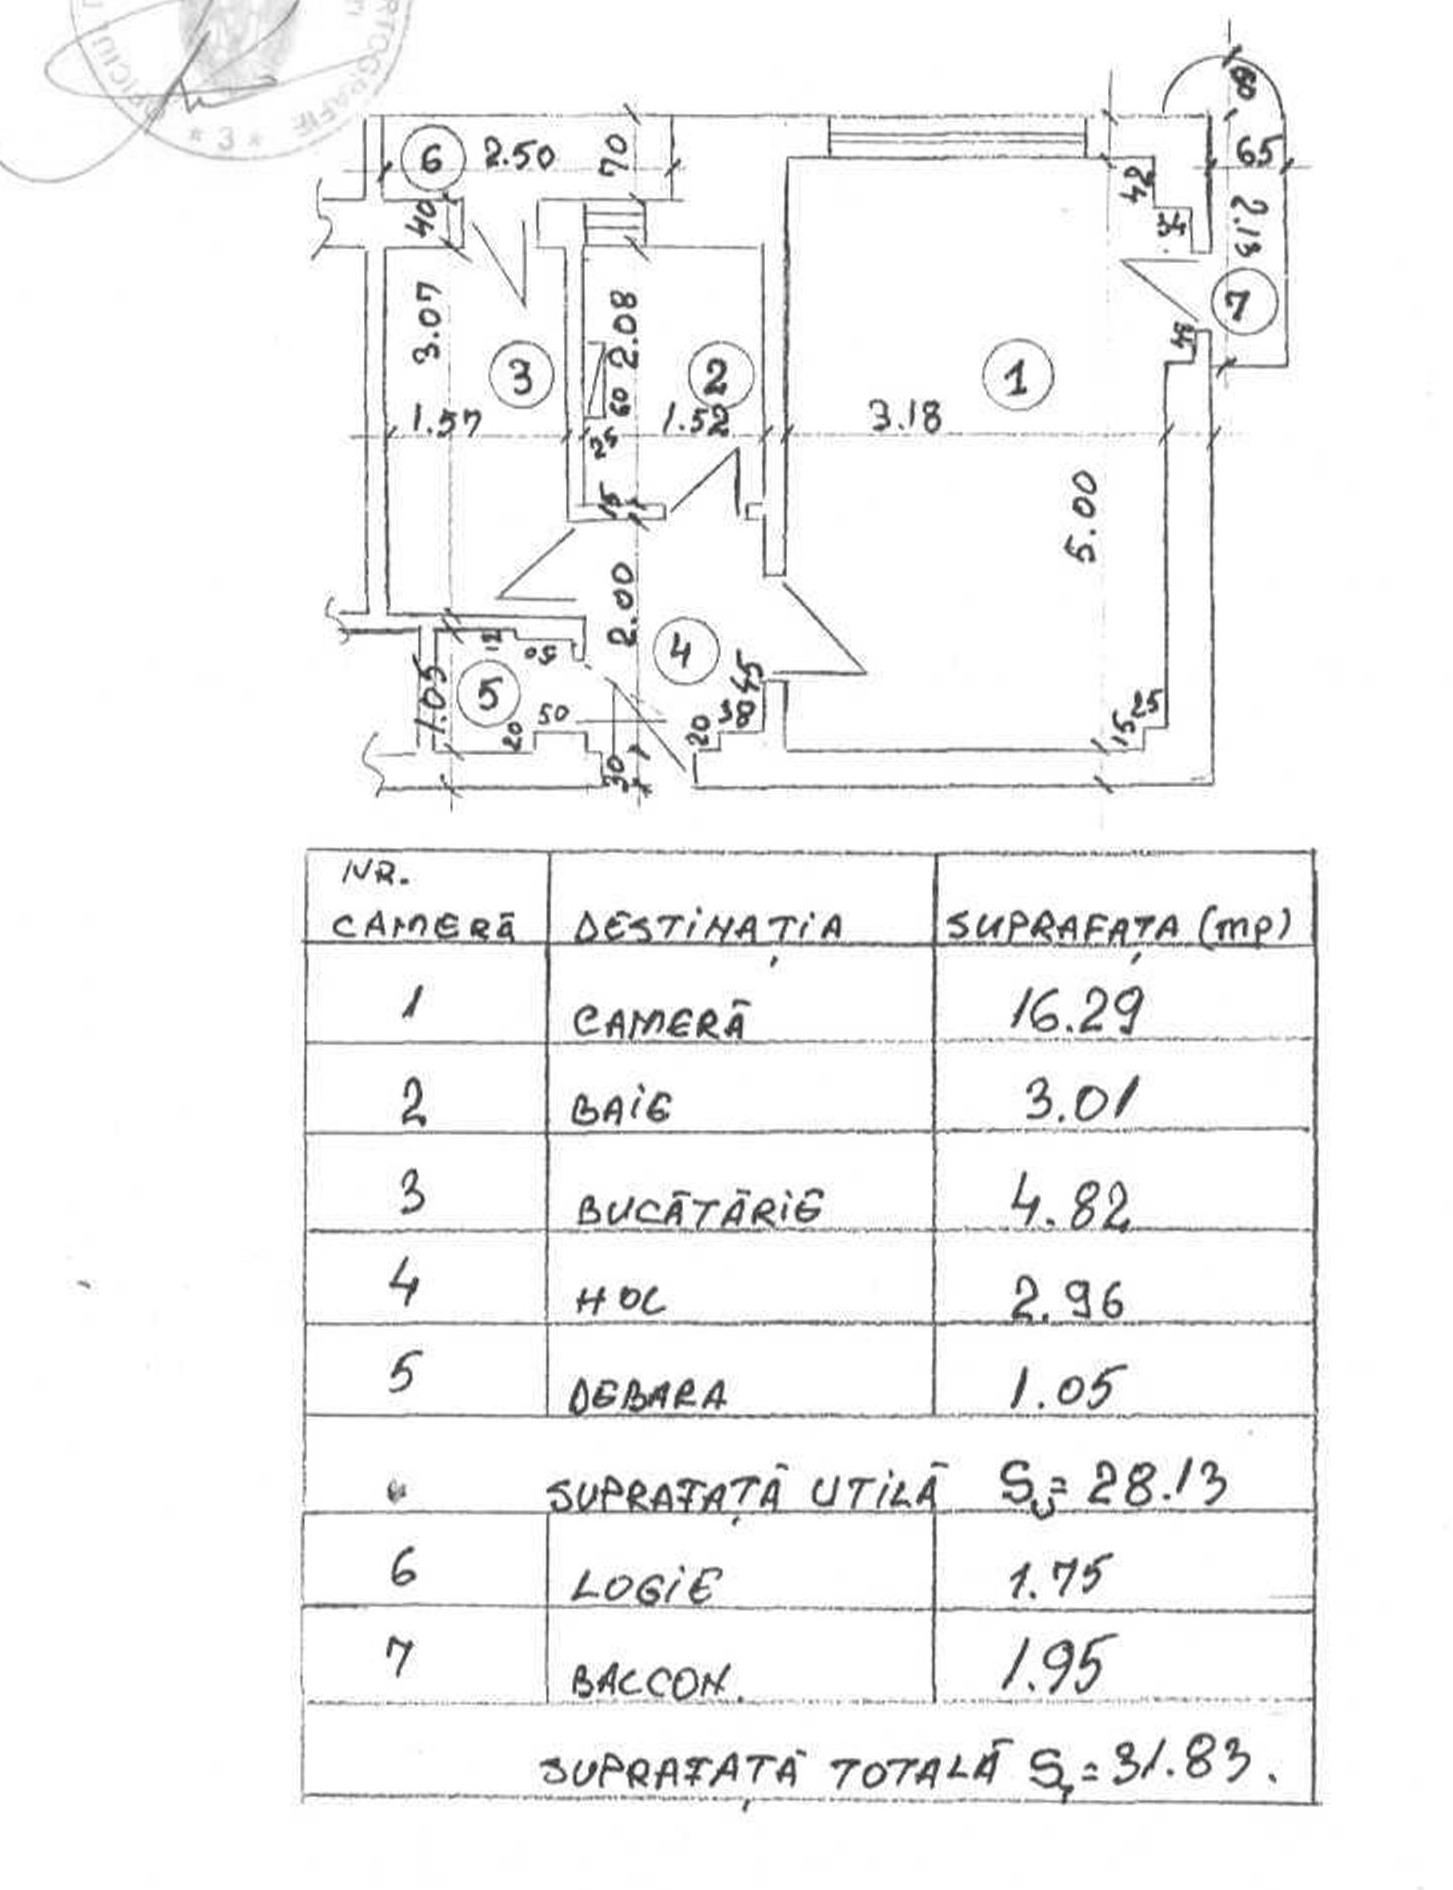 * 3 *
60
6
2.50
70
65
42
40
2.13
7
3.07
2.08
34
3
2
1
60
1.57
1.52
3.18
25
15
5.00
2.00
12
50
4
45
5
1.05
50
38
20
20
25
15
30
NR.
CAMERĂ DESTINAȚIA SUPRAFAȚA (mp)
1 CAMERĂ 16.29
2 BAIE 3.01
3 BUCĂTĂRIE 4.82
4 HOL 2.96
5 DEBARA 1.05
SUPRAFAȚĂ UTILĂ Su= 28.13
6 LOGIE 1.75
7 BALCON. 1.95
SUPRAFAȚĂ TOTALĂ ST= 31.83.